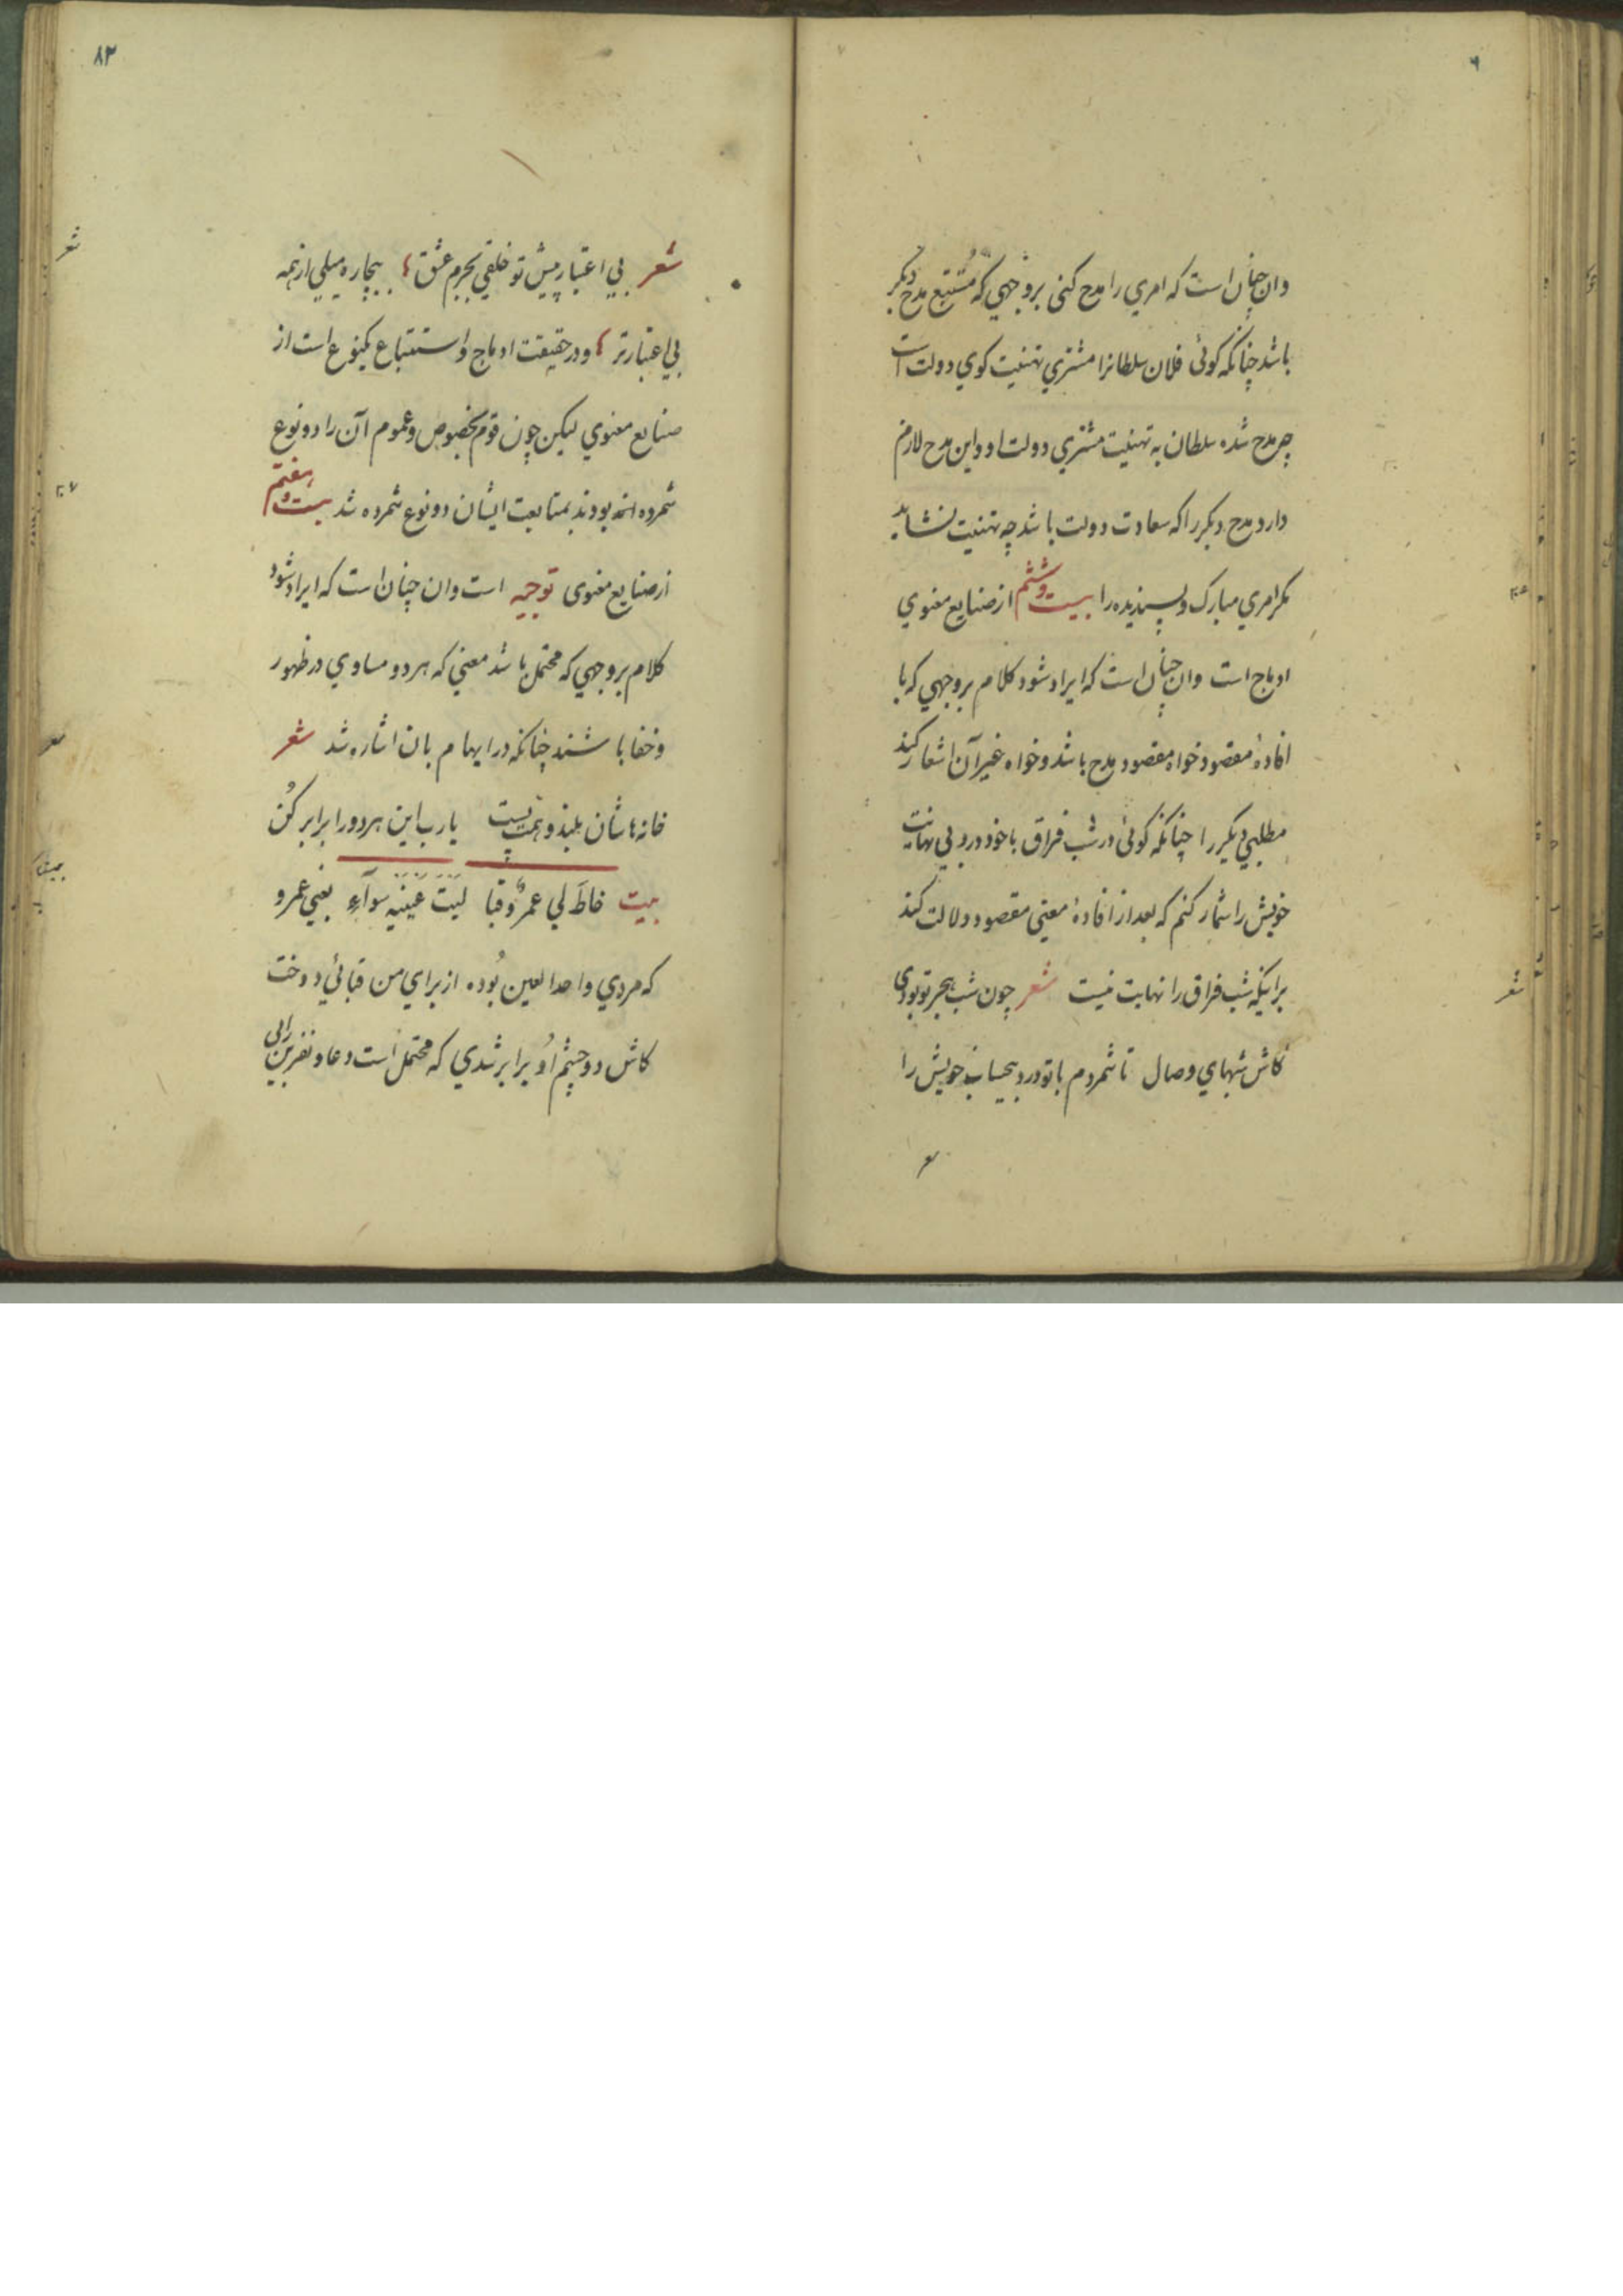 وان چنان است که امري را مدح کنی بروجهي که مُستتبع مدح دیکر
باشد چنانکه کوئی فلان سلطانرا مشتري تهنیت کوي دولت است
چه مدح شده سلطان به تهنیت مشتري دولت او و این مدح لازم
دارد مدح دیکر را که سعادت دولت باشد چه تهنیت نشاید
مکر امري مبارک و پسندیده را بیست و ششم از صنایع معنوي
ادماج است وان چنان است که ایراد شود کلام بروجهي که با
افادهٔ مقصود خواه مقصود مدح باشد و خواه غیر آن اشعار کند
مطلبي دیکر را چنانکه کوئی در شب فراق با خود درد بي نهایت
خویش را شمار کنم که بعد از افادهٔ معنی مقصود دلالت کند
برانیکه شب فراق را نهایت نیست شعر چون شب هجر تو بودی
کاش شبهاي وصال تا شمردم با تو درد بیحساب خویش را
شعر
۸۲
شعر بي اعتبار پیش تو خلقي بجرم عشق بیچاره میلي از همه
بي اعتبارتر و در حقیقت ادماج و استتباع یکنوع است از
صنایع معنوي لیکن چون قوم بخصوص و عموم آن را دو نوع
شمرده اند بودند بمتابعت ایشان دو نوع شمرده شد بیست و هفتم
از صنایع معنوی توجیه است وان چنان است که ایراد شود
کلام بروجهي که محتمل باشد معني که هر دو مساوي در ظهور
و خفا باشند چنانکه در ایهام بان اشاره شد شعر
خانه هاشان بلند و همت پست یا رب این هر دو را برابر کُن
بیت خاطَ لي عمرٌو قبا لیتَ عَینَیه سوآء یعني عمرو
که مردي واحد العین بُوده از براي من قبائي دوخت
کاش دو چشم اُو برابر شدي که محتمل است دعا و نفرین را